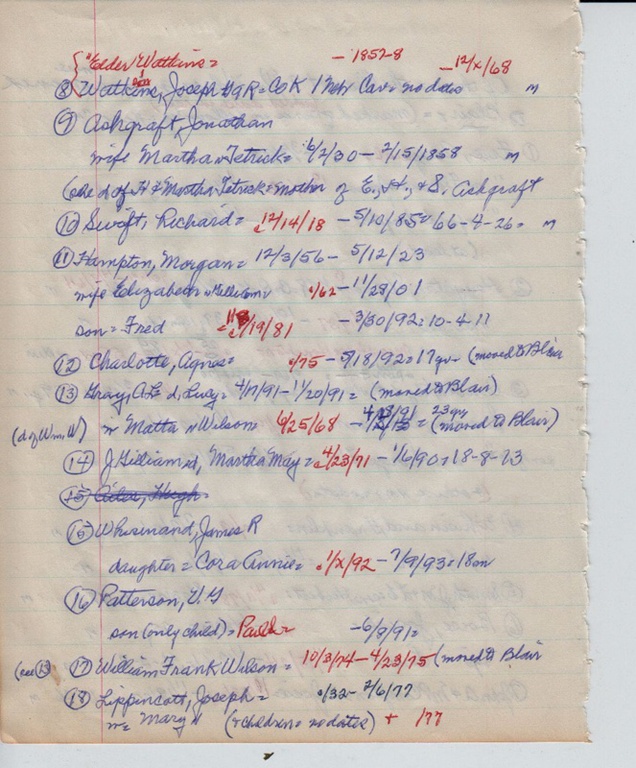 "Elder" Watkins = - 1857-8 - 12/x/68
⑧ Watkins, Joseph H 9R = Co K / Cav = no dates m
⑨ Ashgraft, Jonathan
wife Martha n Tetrick = 6/2/30 - 2/15/1858 m
(see d of H & Martha Tetrick = mother of E., H., & S. Ashgraft
⑩ Swift, Richard = 12/14/18 - 5/10/85 = 66-4-26 = m
⑪ Hampton, Morgan = 12/3/56 - 5/12/23
wife Elizabeth n William = /62 - 11/28/01
son = Fred = 11/19/81 - 3/30/92 = 10-4-11
⑫ Charlotte, Agnes = /75 - 5/18/92 = 17 yr (moved to Blair
⑬ Gray, d, Lucy = 4/17/91 - 11/20/91 = (moved to Blair)
(d of Wm, W) w Matta n Wilson 6/25/68 - = 23 yrs (moved to Blair)
⑭ J William d, Martha May = 4/23/71 - 1/6/90 = 18-8-13
⑮ Hugh
⑮ Whisenand, James R
daughter = Cora Annie = 1/x/92 - 7/9/93 = 18 m
⑯ Patterson, U.S
son (only child) = - 6/8/91 =
(see ⑬) ⑰ William Frank Wilson = 10/3/74 - 4/23/75 (moved to Blair
⑱ Lippincott, Joseph = /32 - 2/6/77
w = Mary " (& children = no dates) + /77